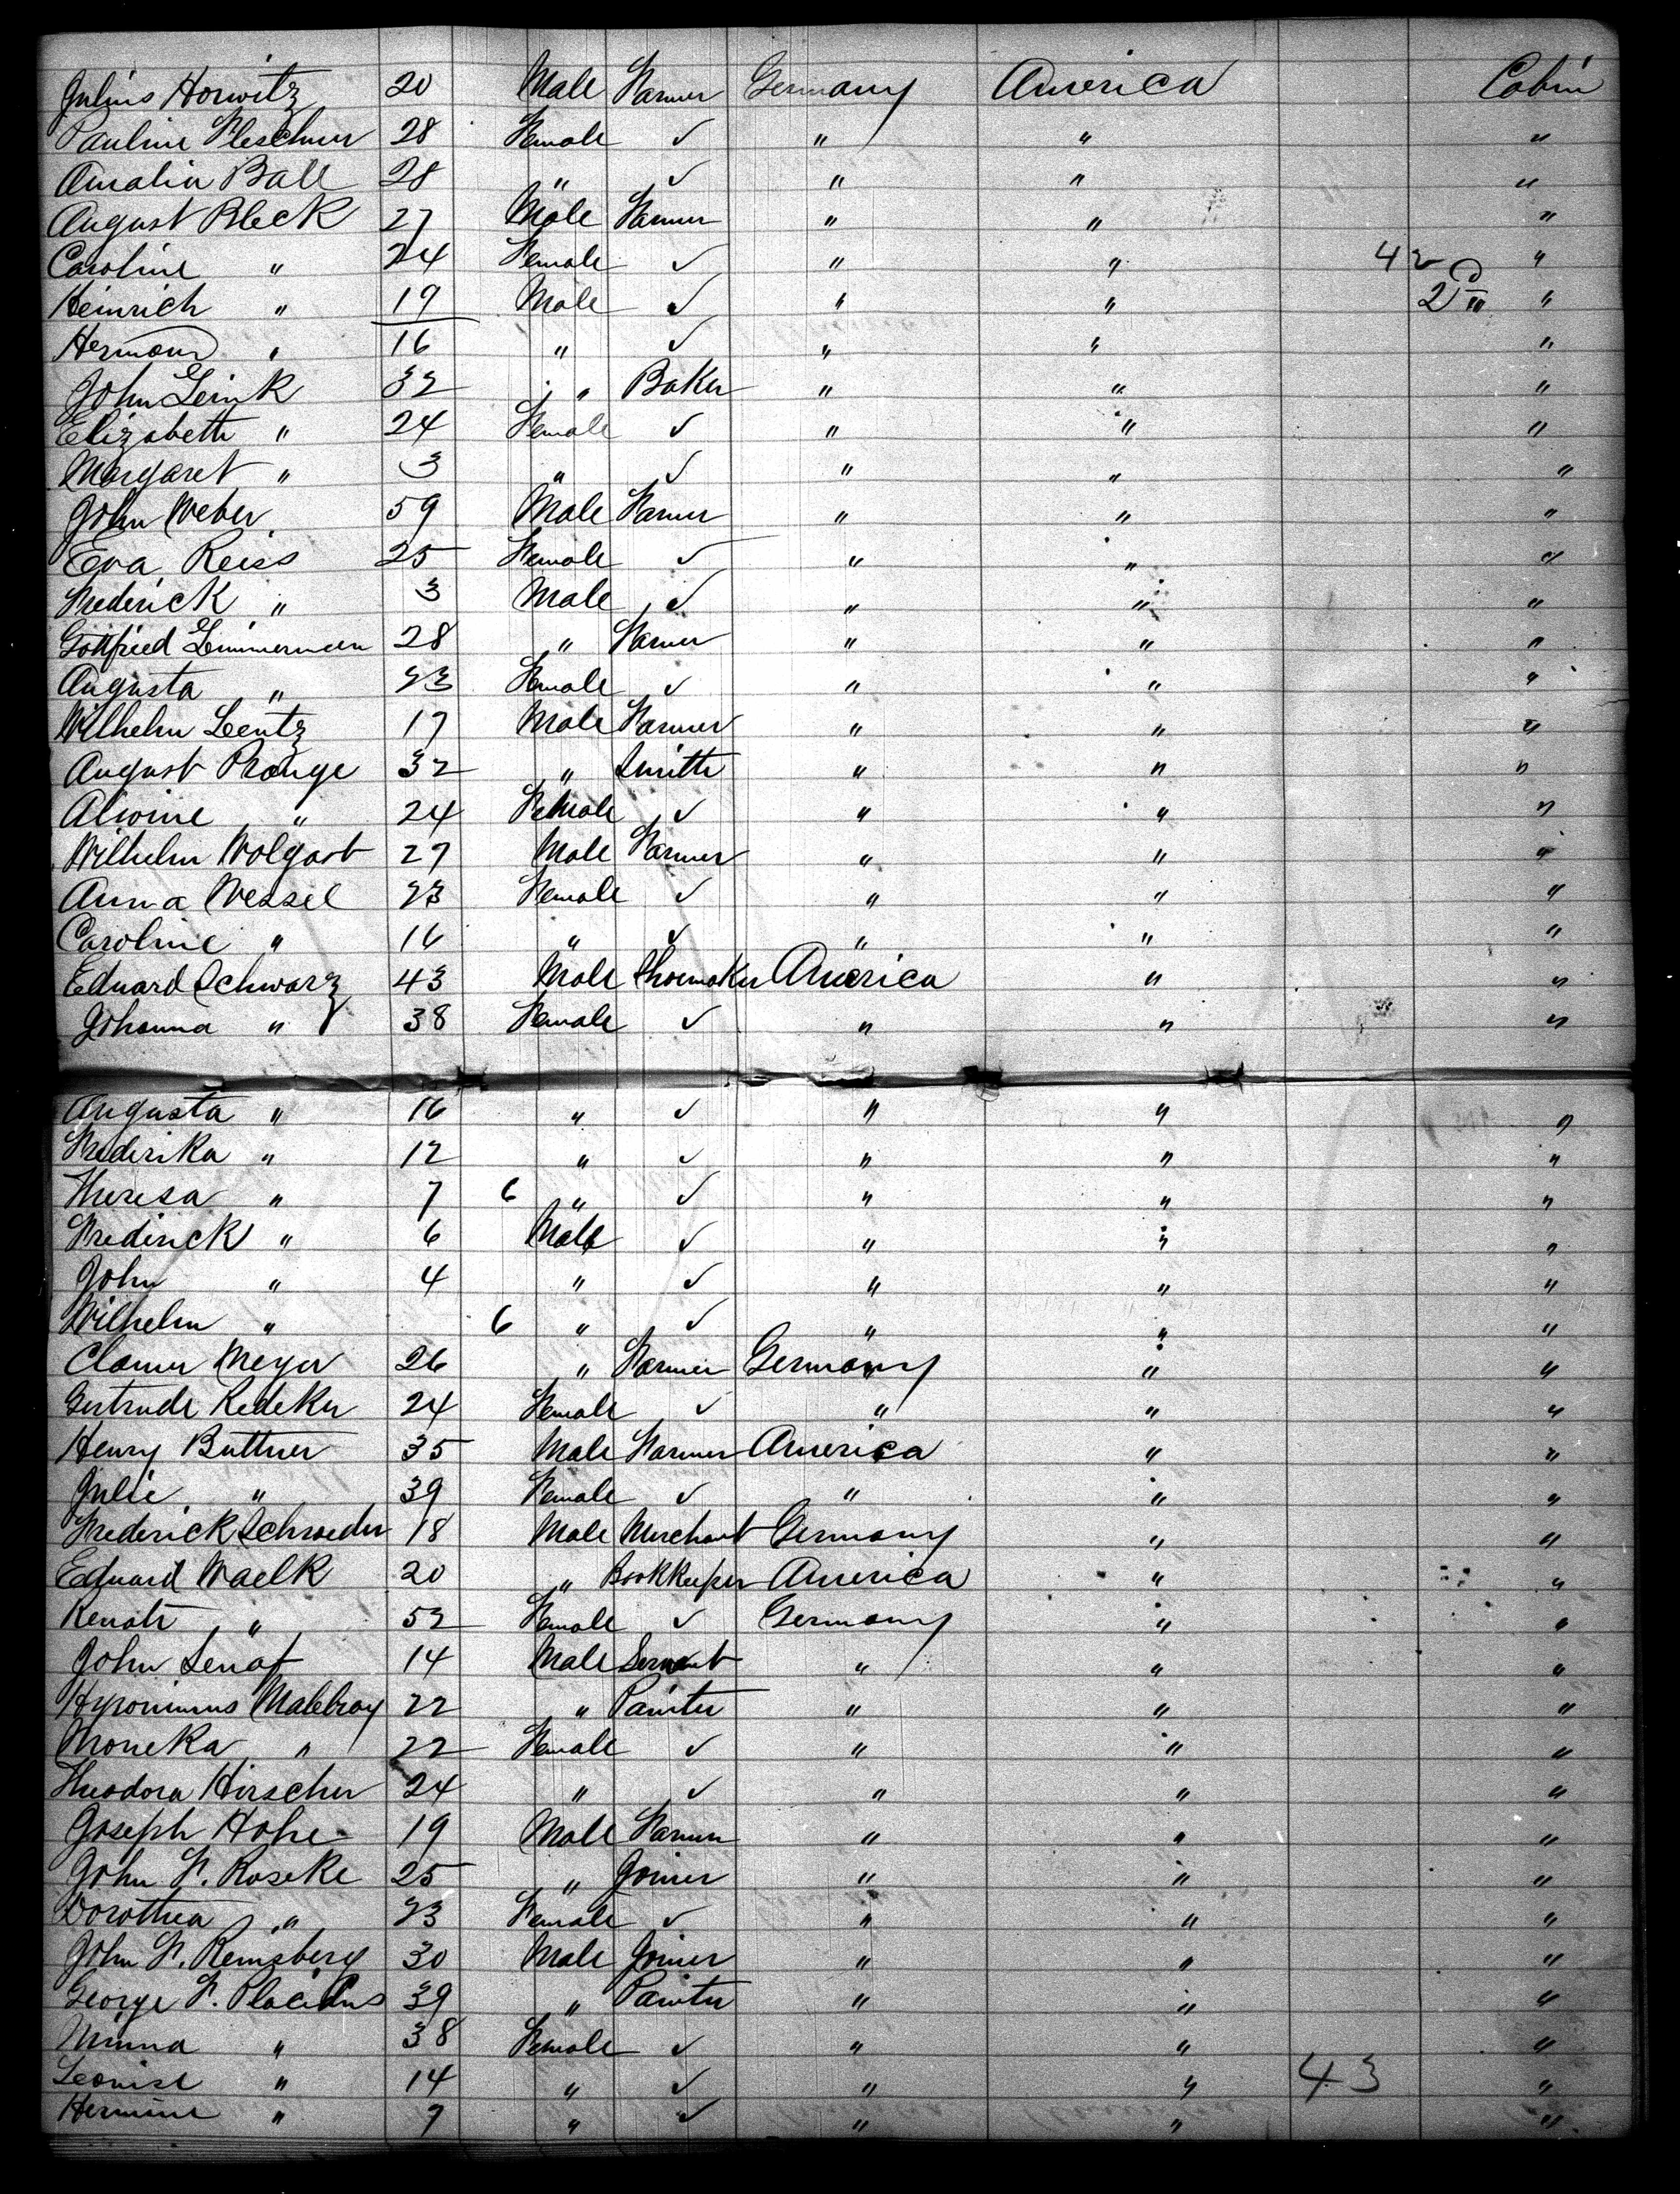 Julius Horwitz 20 Male Farmer Germany America Cabin
Pauline Fleschner 28 Female ✓ " " "
Amalia Ball 28 " ✓ " " "
August Bleck 27 Male Farmer " " "
Caroline " 24 Female ✓ " " 42 "
Heinrich " 19 Male ✓ " " 2 "
Hermann " 16 " ✓ " " "
John Leink 32 " " Baker " " "
Elizabeth " 24 Female ✓ " " "
Margaret " 3 " ✓ " " "
John Weber 59 Male Farmer " " "
Eva Reiss 25 Female ✓ " " "
Frederick " 3 Male ✓ " " "
Gottfried Zimmerman 28 " Farmer " " "
Augusta " 23 Female ✓ " " "
Wilhelm Leentz 17 Male Farmer " " "
August Prange 32 " Smith " " "
Alwine " 24 Female ✓ " " "
Wilhelm Wolgast 27 Male Farmer " " "
Anna Wessel 23 Female ✓ " " "
Caroline " 16 " ✓ " " "
Eduard Schwarz 43 Male Shoemaker America " "
Johanna " 38 Female ✓ " " "
Augusta " 16 " ✓ " " "
Frederika " 12 " ✓ " " "
Theresa " 7 6 " ✓ " " "
Frederick " 6 Male ✓ " " "
John " 4 " ✓ " " "
Wilhelm " 6 " ✓ " " "
Clamer Meyer 26 " Farmer Germany " "
Gertrude Redeker 24 Female ✓ " " "
Henry Buttner 35 Male Farmer America " "
Julie " 39 Female ✓ " " "
Frederick Schroeder 18 Male Merchant Germany " "
Eduard Waelk 20 " Bookkeeper America " "
Renate " 52 Female ✓ Germany " "
John 14 Male Servant " " "
Hyronimus 22 " Painter " " "
Moneka " 22 Female ✓ " " "
Theodora Hirscher 24 " ✓ " " "
Joseph Hohe 19 Male Farmer " " "
John F. Roseke 25 " Joiner " " "
Dorothea " 23 Female ✓ " " "
John F. Remsberg 30 Male Joiner " " "
George F. Placidus 39 " Painter " " "
Minna " 38 Female ✓ " " "
Leonise " 14 " ✓ " " 43 "
Hermine " 7 " ✓ " " "